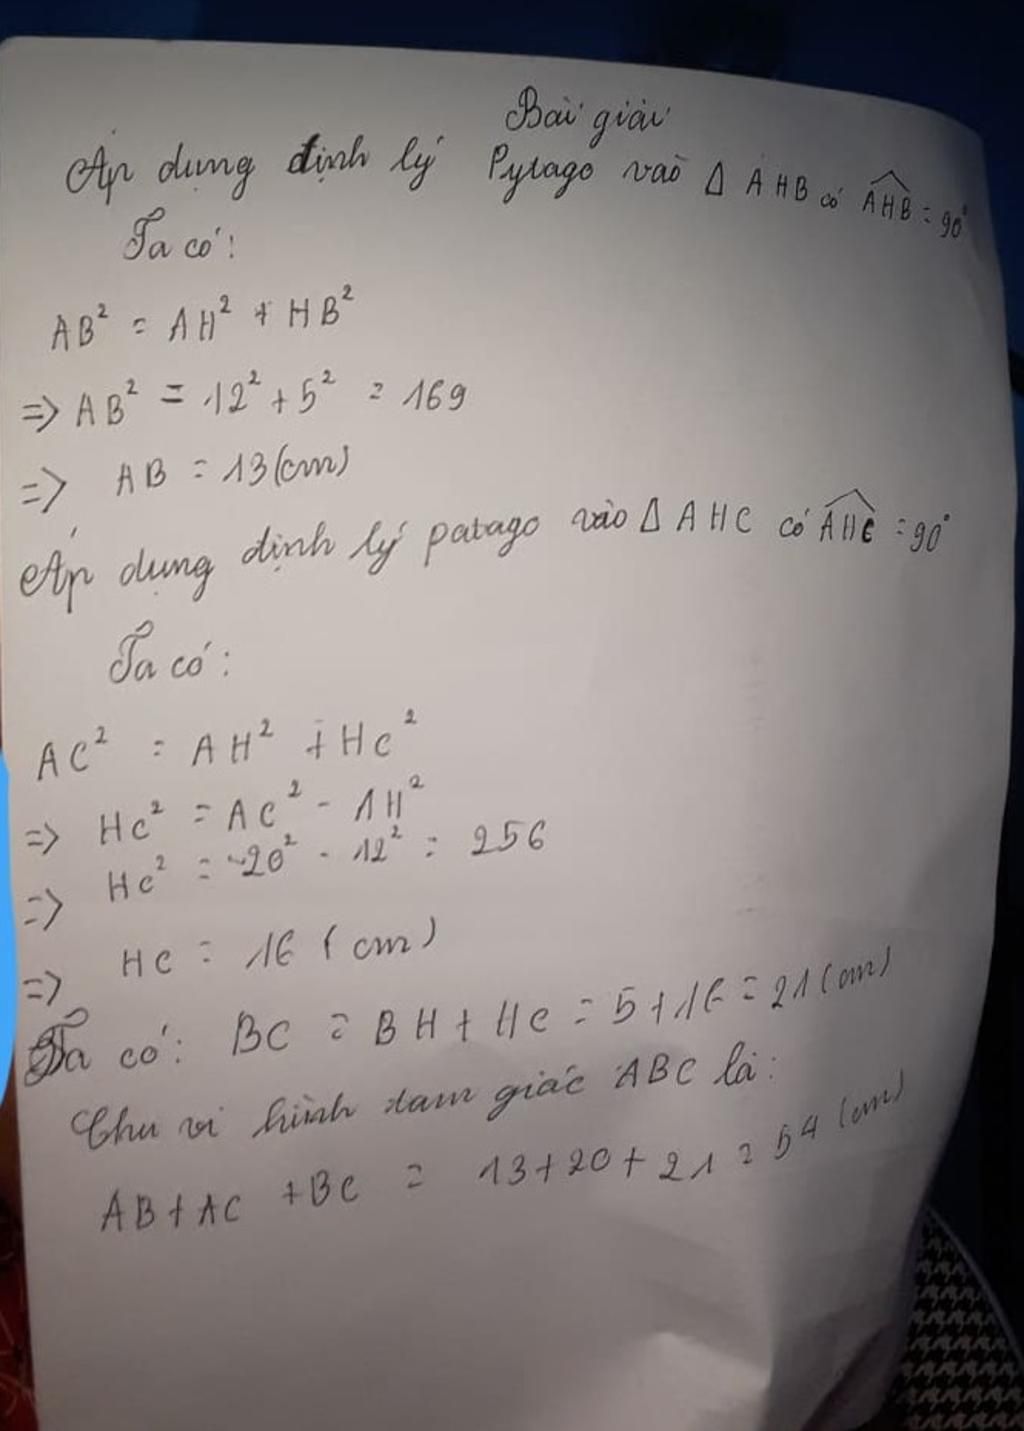 Bài giải
Áp dụng định lý Pytago vào Δ AHB có AHB = 90°
Ta có:
AB² = AH² + HB²
=> AB² = 12² + 5² = 169
=> AB = 13 (cm)
Áp dụng định lý patago vào Δ AHC có AHC = 90°
Ta có:
AC² = AH² + HC²
=> HC² = AC² - AH²
=> HC² = 20² - 12² = 256
=> HC = 16 (cm)
Ta có: BC = BH + HC = 5 + 16 = 21 (cm)
Chu vi hình tam giác ABC là:
AB + AC + BC = 13 + 20 + 21 = 54 (cm)